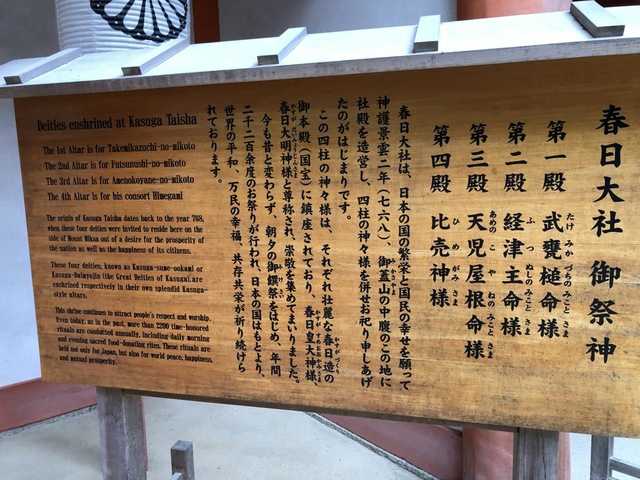 春日大社 御祭神
第一殿 武甕槌命様
たけみかづちのみことさま
第二殿 経津主命様
ふつぬしのみことさま
第三殿 天児屋根命様
あめのこやねのみことさま
第四殿 比売神様
ひめがみさま
春日大社は、日本の国の繁栄と国民の幸せを願って
神護景雲二年(七六八)、御蓋山の中腹のこの地に
みかさやま
社殿を造営し、四柱の神々様を併せお祀り申しあげ
たのがはじまりです。
この四柱の神々様は、それぞれ壮麗な春日造の
やすがづくり
御本殿(国宝)に鎮座されており、春日皇大神様、
春日大明神様と尊称され、崇敬を集めてまいりました。
今も昔と変わらず、朝夕の御饌祭をはじめ、年間
二千二百余度のお祭りが行われ、日本の国はもとより、
世界の平和、万民の幸福、共存共栄が祈り続けら
れております。
Deities-enshrined at Kasuga Taisha
The 1st Altar is for Takemikazuchi-no-mikoto
The 2nd Altar is for Futsunushi-no-mikoto
The 3rd Altar is for Amenokoyane-no-mikoto
The 4th Altar is for his consort Himegami
The origin of Kasuga Taisha dates back to the year 768,
when these four deities were invited to reside here on the
side of Mount Mikasa out of a desire for the prosperity of
the nation as well as the happiness of its citizens.
These four deities, known as Kasuga-sume-ookami or
Kasuga-daimyojin (the Great Deities of Kasuga), are
enshrined respectively in their own splendid Kasuga-
style altars.
This shrine continues to attract people's respect and worship.
Even today, as in the past, more than 2200 time-honored
rituals are conducted annually, including daily morning
and evening sacred food-donating rites. These rituals are
held not only for Japan, but also for world peace, happiness,
and mutual prosperity.